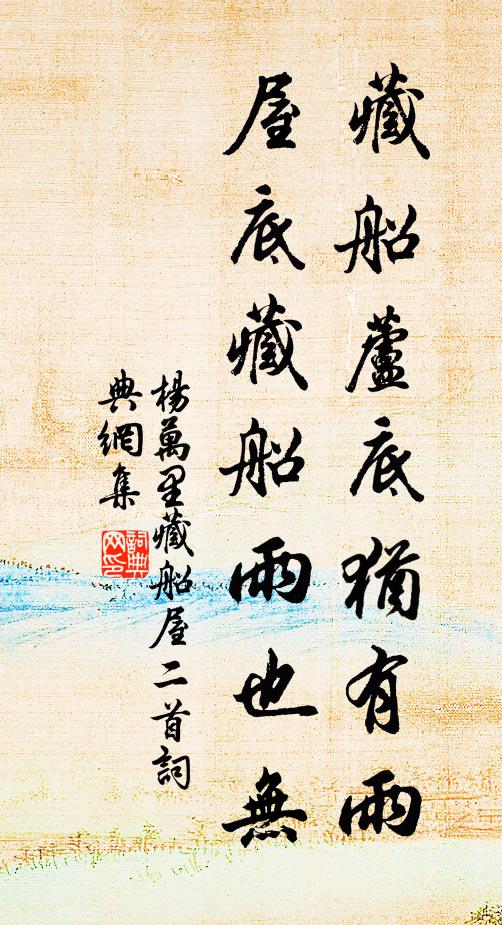 藏船蘆底猶有雨
屋底藏船雨也無
楊萬里藏船屋二首詞
典網集
詞典網印